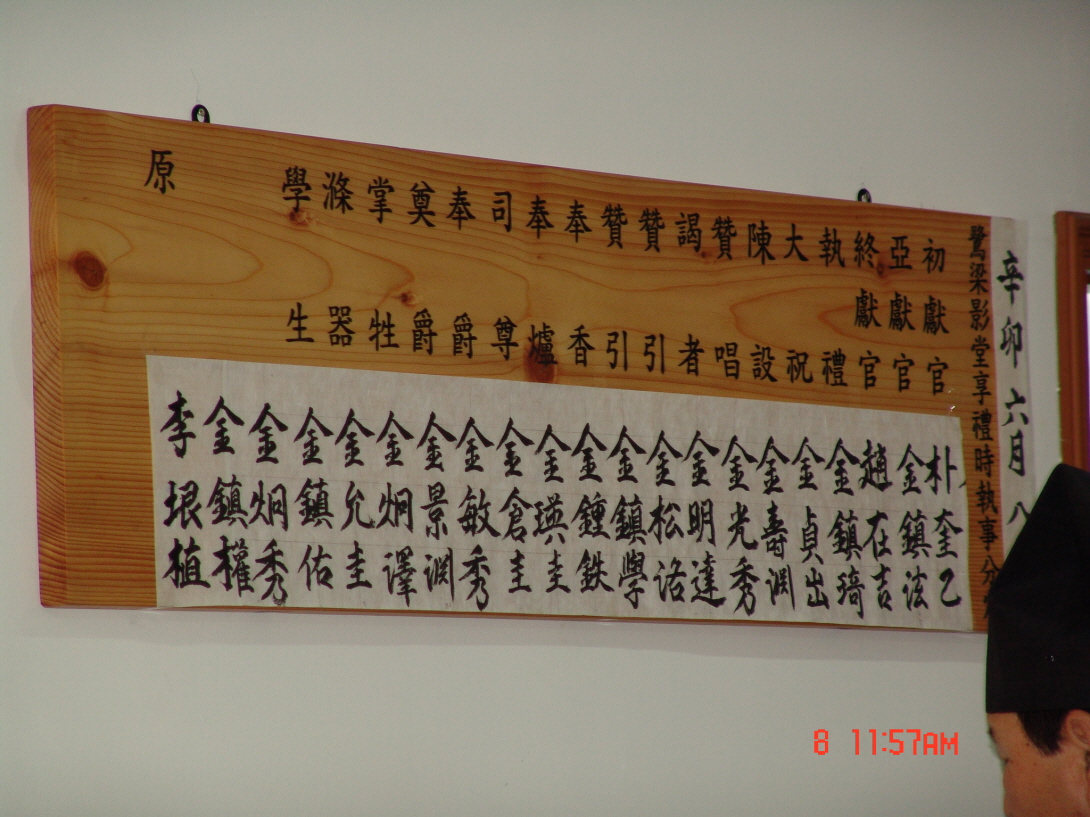 辛卯六月八
鷺梁影堂享禮時執事分
初獻官
亞獻官
終獻官
執禮
大祝
陳設
贊唱
謁者
贊引
贊引
奉香
奉爐
司尊
奉爵
奠爵
掌牲
滌器
學生
原
朴奎乙
金鎮
趙在吉
金鎮琦
金貞出
金壽渊
金光秀
金明達
金松洛
金鎮學
金鍾鉄
金瑛圭
金倉圭
金敏秀
金景渊
金炯澤
金允圭
金鎮佑
金炯秀
金鎮權
李垠植
8 11:57AM